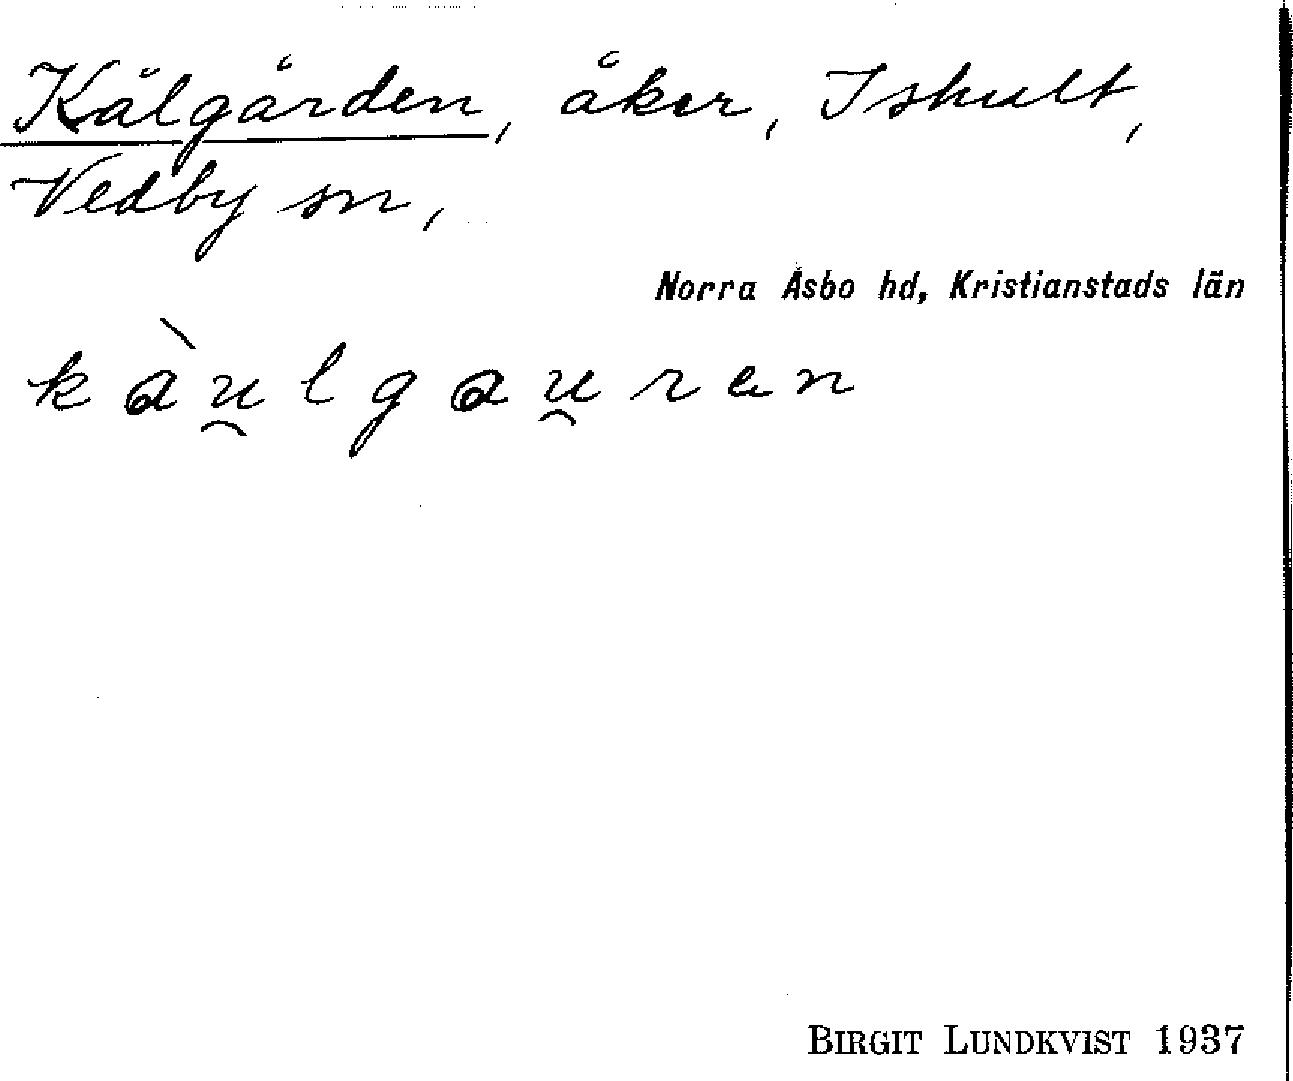 Kålgården, åker, Ishult,
Vedby sn,
Norra Åsbo hd, Kristianstads län
k à u̯ l g a u̯ r e n
BIRGIT LUNDKVIST 1937